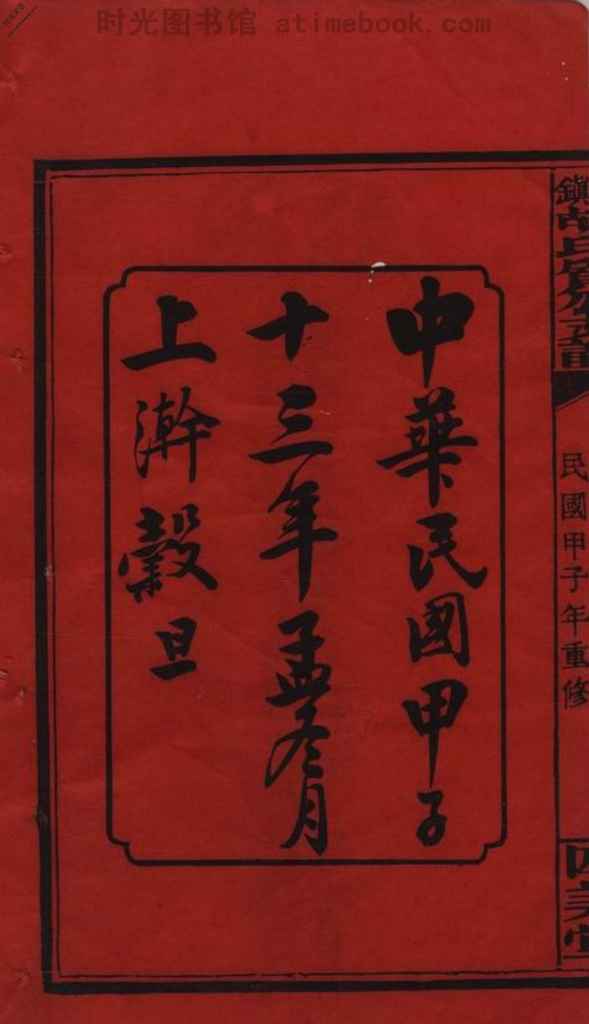 时光图书馆 atimebook.com
中華民國甲子
十三年孟冬月
上澣穀旦
民國甲子年重修